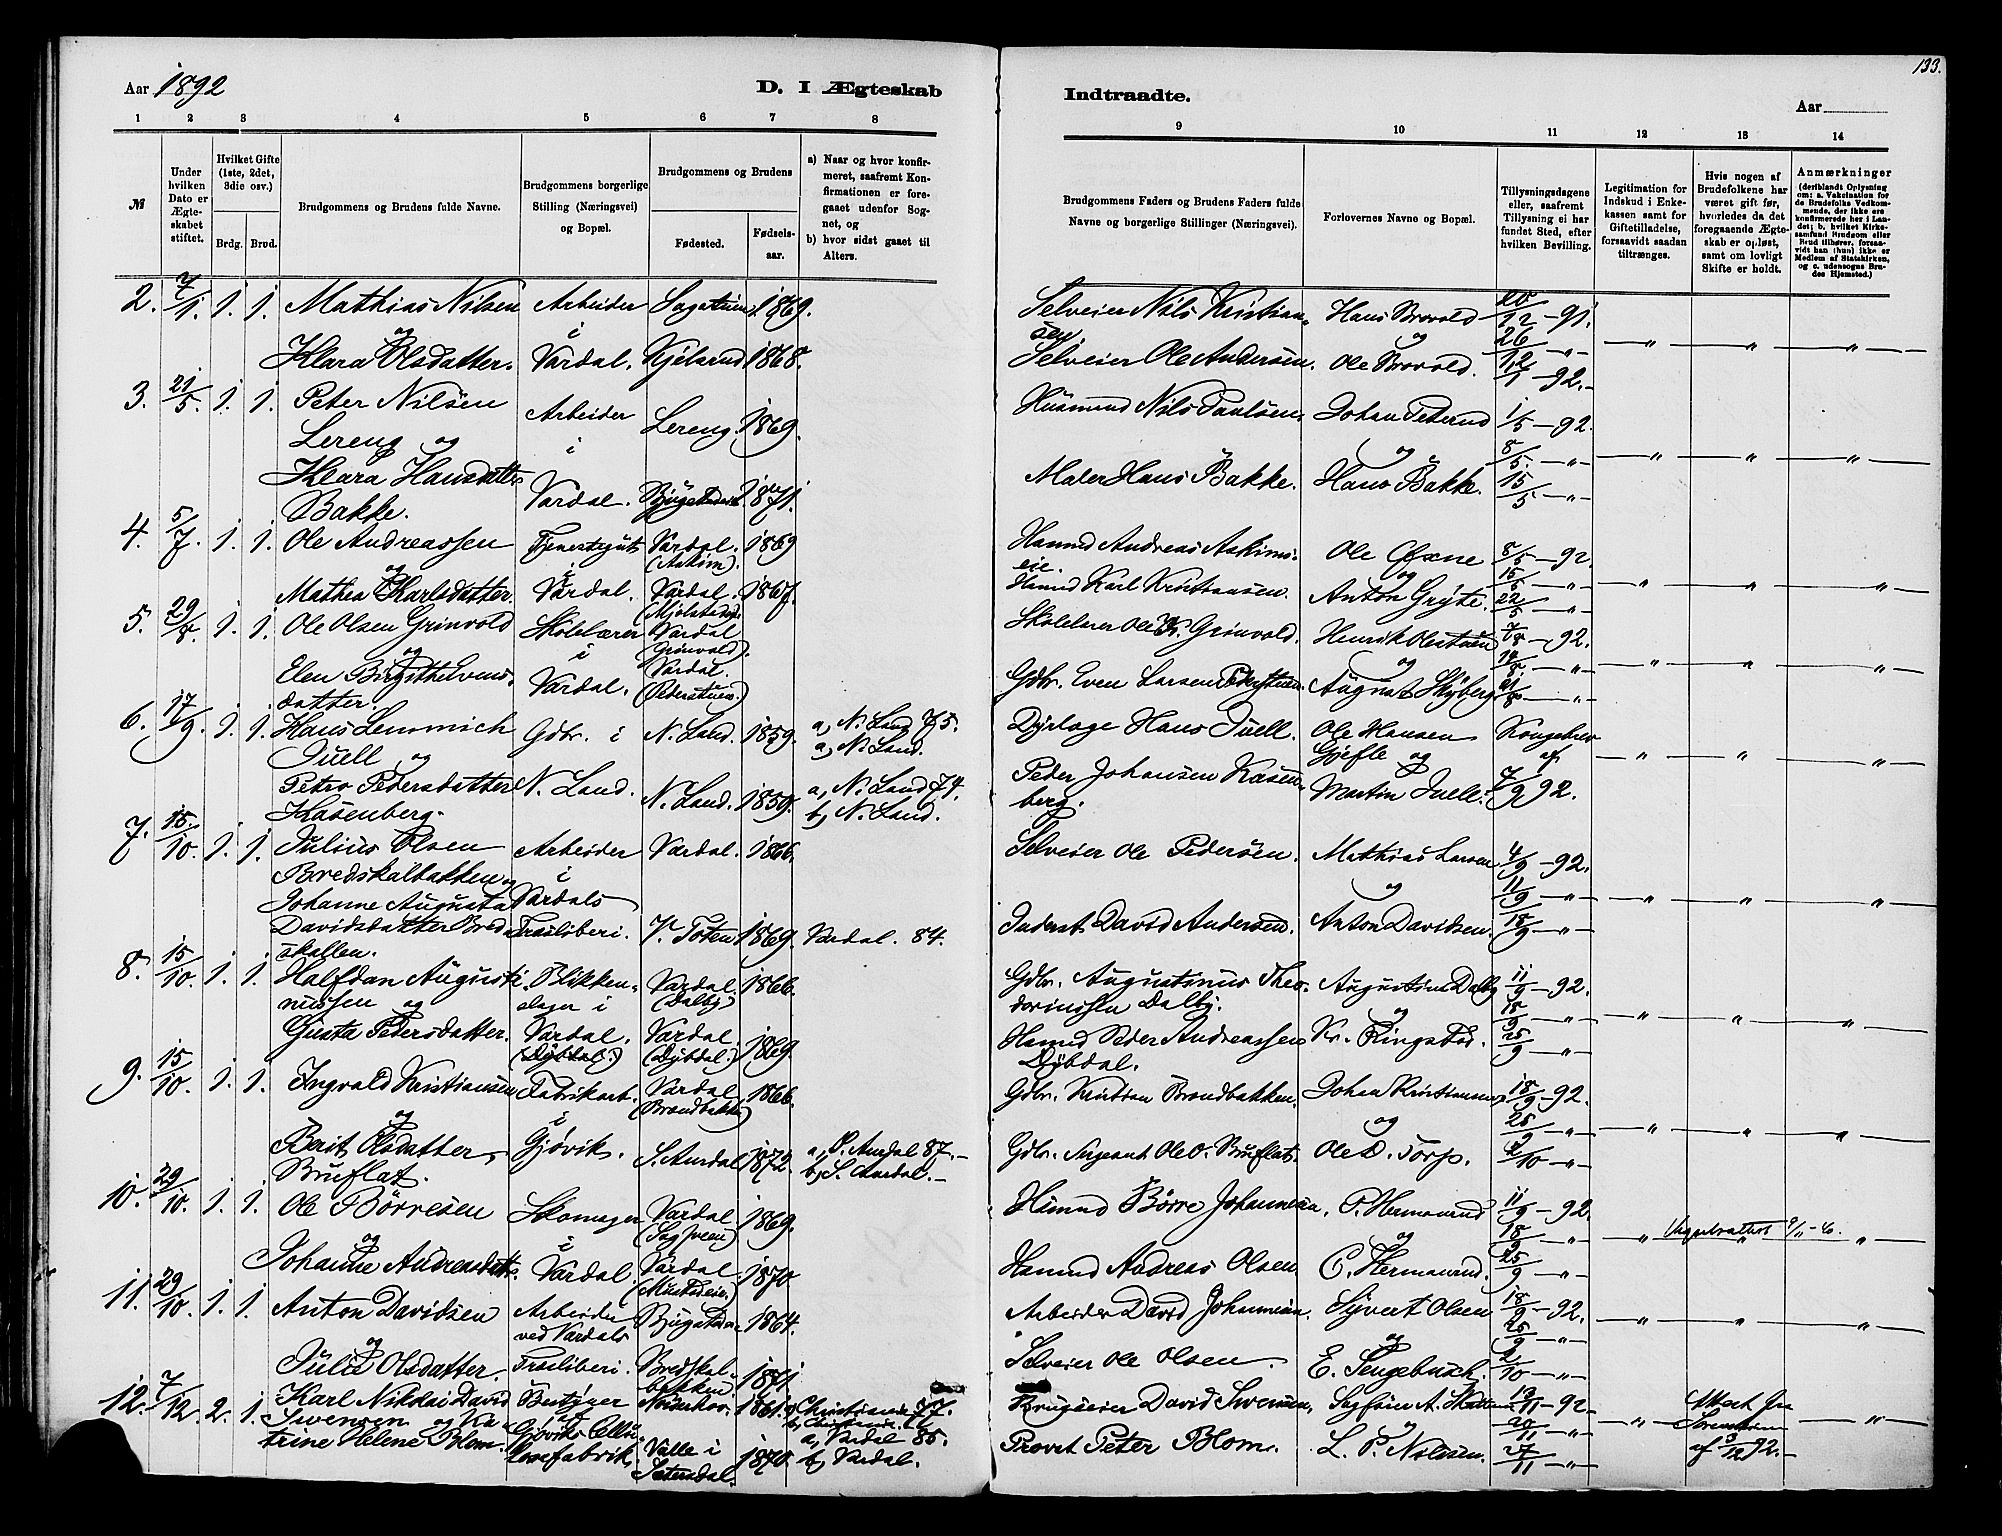 Aar 1892
D. I Ægteskab
1 2 3 4 5 6 7 8
№
Under hvilken Dato er Ægteskabet stiftet.
Hvilket Gifte (1ste, 2det, 3die osv.)
Brdg. Brud.
Brudgommens og Brudens fulde Navne.
Brudgommens borgerlige Stilling (Næringsvei) og Bopæl.
Brudgommens og Brudens
Fødested. Fødselsaar.
a) Naar og hvor konfirmeret, saafremt Konfirmationen er foregaaet udenfor Sognet, og
b) hvor sidst gaaet til Alters.
2. 7/1. 1. 1. Mathias Nilsen Arbeider 1869.
og i
Klara Olsdatter. Vardal. Kjelsrud 1868.
3. 21/5. 1. 1. Peter Nilsen Arbeider Lereng. 1869.
Lereng og i
Klara Hansdatter
Bakke. Vardal. 1871.
4. 5/7. 1. 1. Ole Andreassen Tjenestegut Vardal. 1869
og i (Askim).
Mathea Karlsdatter. Vardal. Vardal. 1867.
5. 29/8. 1. 1. Ole Olsen Grinvold Skolelærer Vardal
og i (Grinvold).
Elen Birgithe Evensdatter. Vardal. Vardal.
(Pederstuen.)
6. 17/9. 1. 1. Hans Lemmich Gdbr. i N. Land. 1859. a, N. Land 75.
Juell og a, N. Land.
Petra Pedersdatter N. Land. N. Land. 1859. a, N. Land 74.
Kasenberg. b, N. Land.
7. 15/10. 1. 1. Julius Olsen Arbeider Vardal. 1866.
Bredskalbakken og i
Johanne Augusta Vardals
Davidsdatter Bredskallen. Træsliberi. V. Toten 1869. Vardal. 84.
8. 15/10. 1. 1. Halfdan Augustinussen og Blikkenslager i Vardal. (Dalby) 1866.
Gusta Pedersdatter. Vardal. (Dybdal.) Vardal. (Dybdal.) 1869.
9. 15/10. 1. 1. Ingvald Kristiansen Fabrikarb. Vardal (Brandbakken) 1866.
og i
Berit Olsdatter Gjøvik. S. Aurdal 1872. a, S. Aurdal 87.
Bruflat. b, S. Aurdal.
10. 29/10. 1. 1. Ole Børresen Skomager Vardal 1869.
og i
Johanne Andreasdatter. Vardal. Vardal. 1870.
11. 29/10. 1. 1. Anton Davidsen Arbeider 1864.
og ved Vardals
Julie Olsdatter. Træsliberi. Bredskalbakken. 1871
12. 7/12. 2. 1. Karl Nikolai David Bestyrer 1861. a, Christiania 77.
Svensen og Katrine Helene Blom. Cellulosefabrik. Valle i Sætersdal. 1870. a, Vardal 85.
b, Vardal.
133.
Indtraadte.
Aar
9 10 11 12 13 14
Brudgommens Faders og Brudens Faders fulde Navne og borgerlige Stillinger (Næringsvei).
Forlovernes Navne og Bopæl.
Tillysningsdagene eller, saafremt Tillysning ei har fundet Sted, efter hvilken Bevilling.
Legitimation for Indskud i Enkekassen samt for Giftetilladelse, forsaavidt saadan tiltrænges.
Hvis nogen af Brudefolkene har været gift før, hvorledes da det foregaaende Ægteskab er opløst, samt om lovligt Skifte er holdt.
Anmærkninger
(deriblandt Oplysning om: a. Vakcination for de Brudefolks Vedkommende, der ikke ere konfirmerede her i Landet; b. hvilket Kirkesamfund Brudgom eller Brud tilhører, forsaavidt han (hun) ikke er Medlem af Statskirken, og c. udensogns Brudes Hjemsted.)
Selveier Nils Kristiansen Hans Brovold 20/12 - 91.
og 26/12 - " -
Selveier Ole Andersen. Ole Brovold. 1/1 - 92.
Husmand Nils Paulsen. Johan Peterud 1/5 - 92.
og 8/5. - " -
Maler Hans Bakke. Hans Bakke. 15/5 - " -
Husmd Andreas Askimseie. Ole Øfsne 8/5 - 92.
og 15/5 - " -
Husmd Karl Kristiansen. Anton Gryte. 22/5 - " -
Skolelærer Ole Grinvold. Henrik 7/8 - 92.
og 14/8 - " -
Gdbr. Even Larsen Pederstuen. August Skyberg. 21/8 - " -
Dyrlæge Hans Juell. Ole Hansen Kongebrev
Gjefle og af
Peder Johansen Kasenberg. Martin Juell. 7/9 92.
Selveier Ole Pedersen. Mathias Larsen 4/9 - 92.
og 11/9 - " -
Inderst David Andersen. Anton Davidsen. 18/9 - " -
Gdbr. Augustinus Theodorinssen Dalby. Augustinus Dalby 11/9 - 92.
og 18/9 - " -
Husmd Peder Andreassen Dybdal. Kr. Ringstad. 25/9 - " -
Gdbr. Kristian Brandbakken. Johan Kristiansen 18/9 - 92.
og 25/9 - " -
Gdbr. Sergeant Ole O. Bruflat. Ole D. Torp. 2/10 - " -
Husmd Børre Johannesen. P. Hermanrud 11/9 - 92.
og 18/9 - " -
Husmd Andreas Olsen. C. Hermanrud. 25/9 - " -
Arbeider David Johannesen Syvert Olsen 18/9 - 92.
og 25/9 - " -
Selveier Ole Olsen. E. Sengebusch. 2/10 - " -
Brugseier David Svensen, 13/11 - 92.
og 20/11 - " -
Provst Peter Blom. L. P. Nilssen. 27/11 - " -
Attest fra
af 3/12 92.